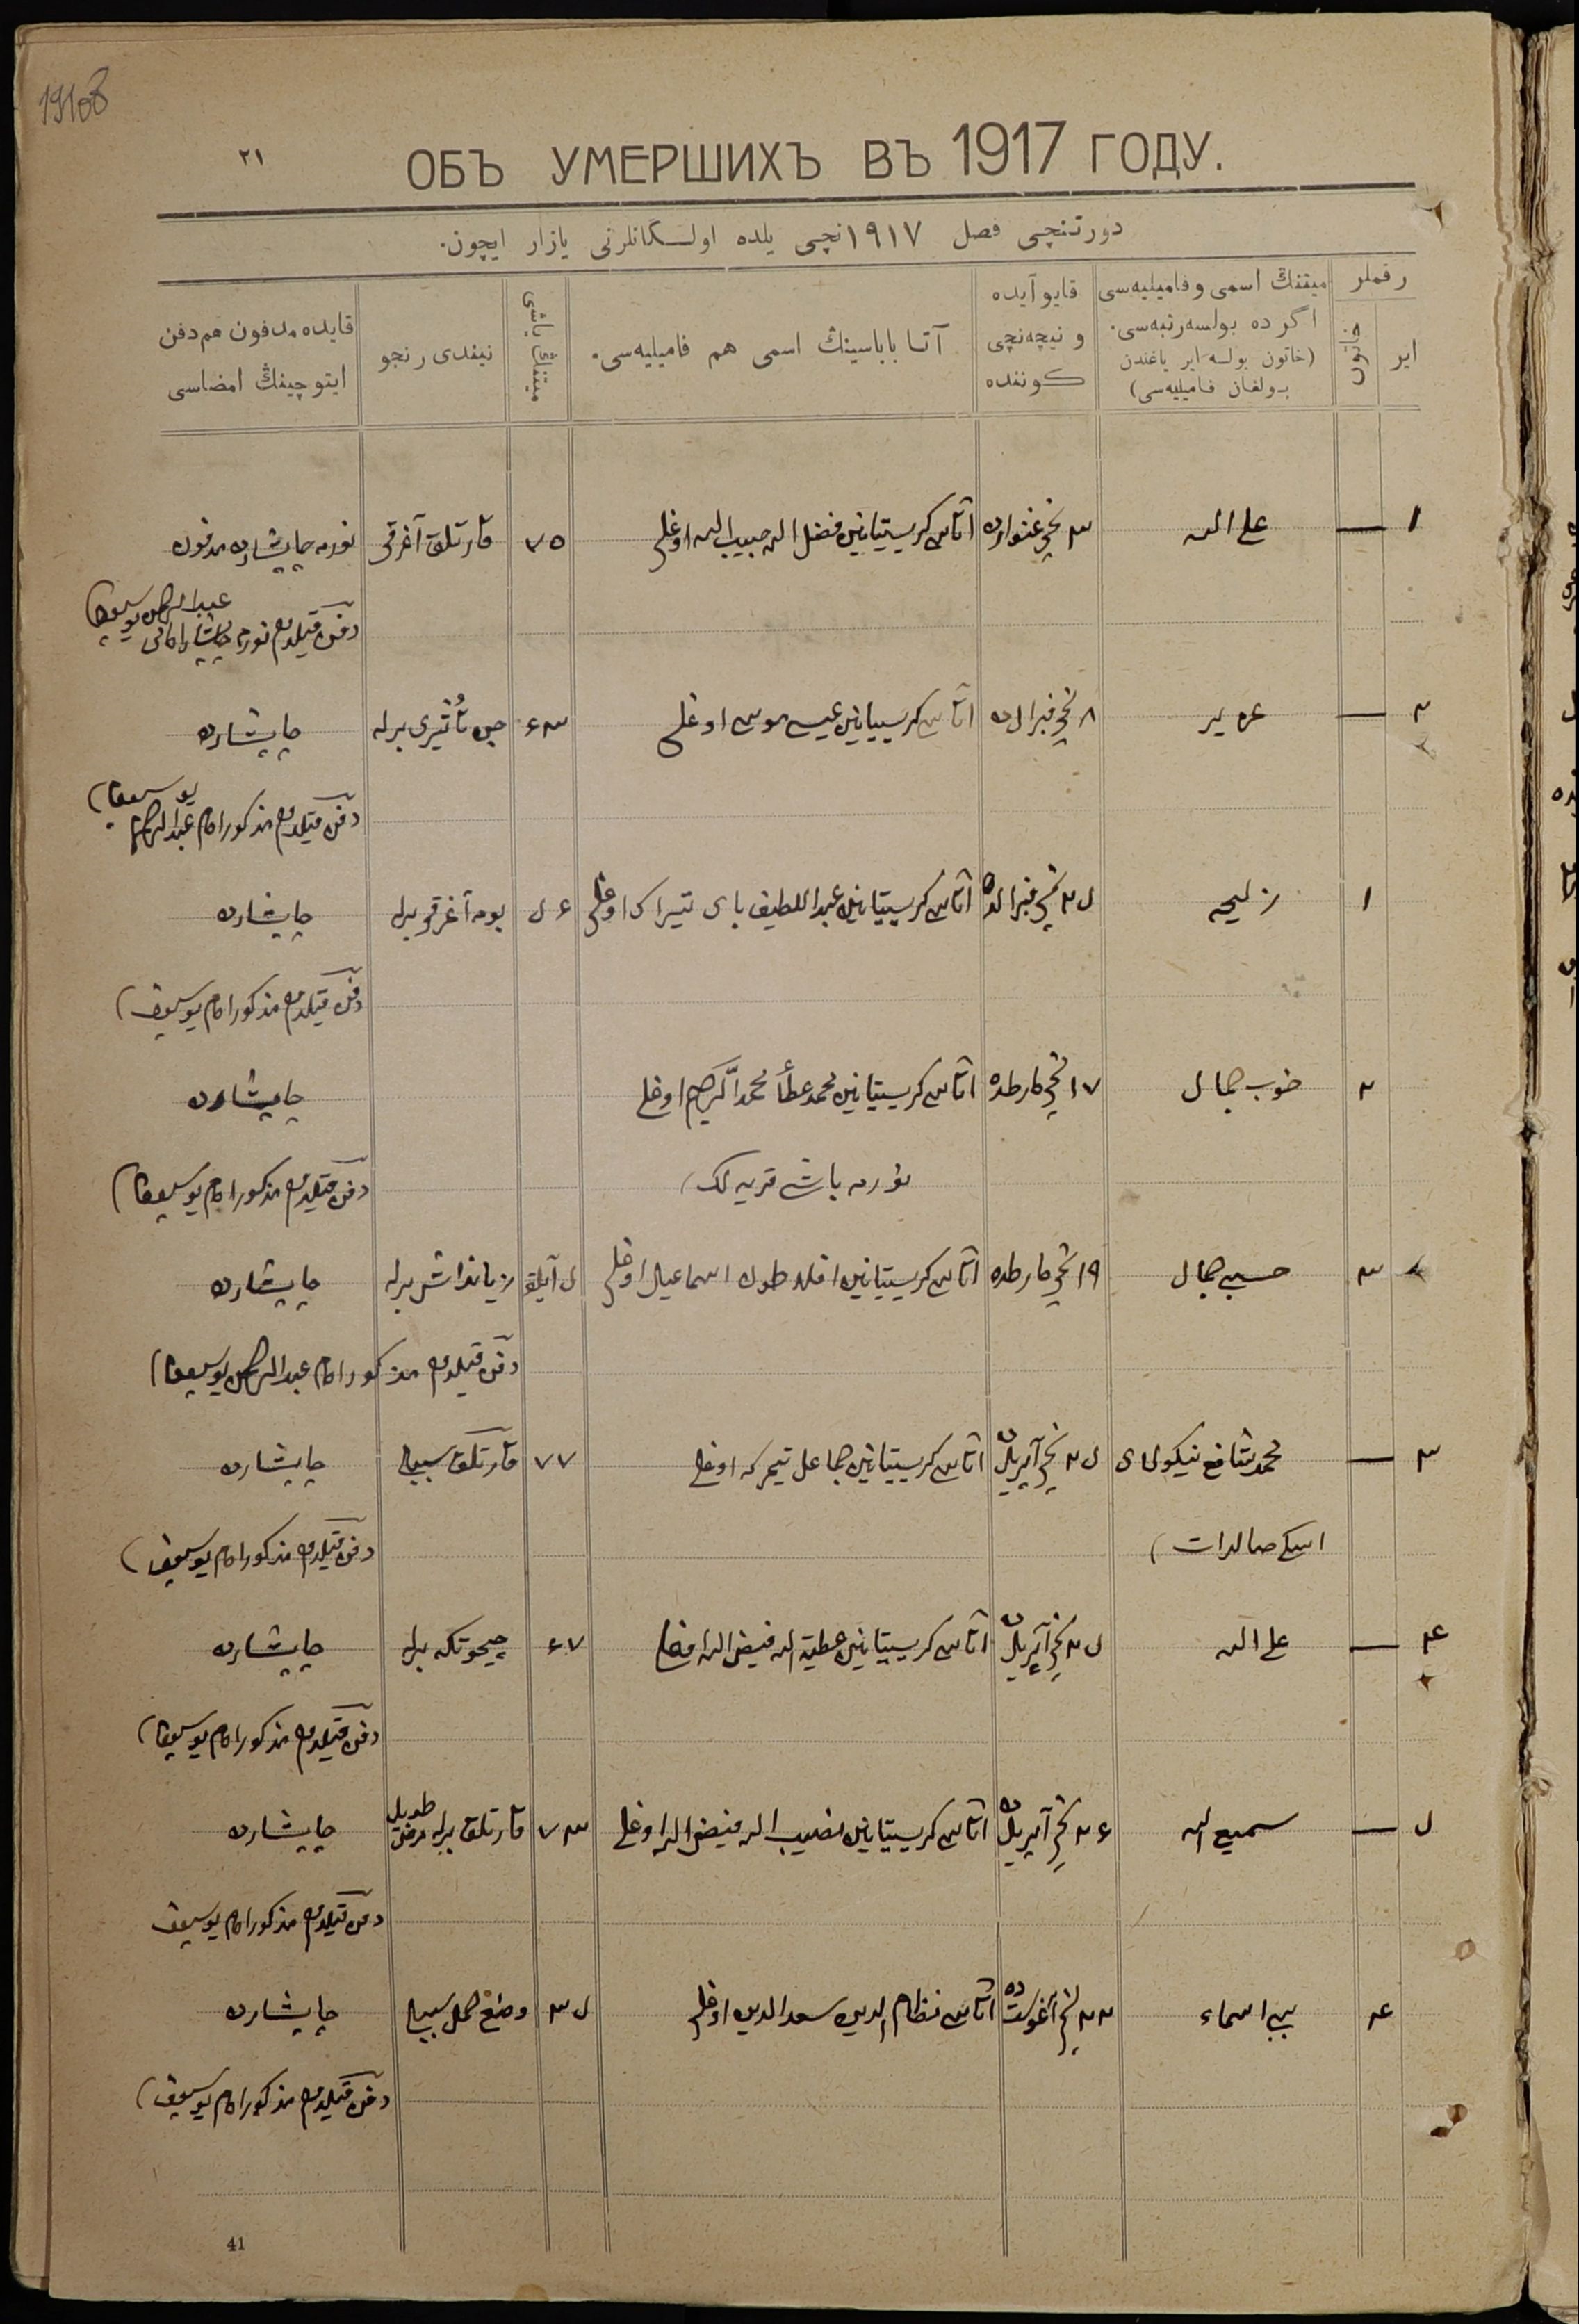 19108
٢١
ОБЪ УМЕРШИХЪ ВЪ 1917 ГОДУ.
دورتنچی فصل ١٩١٧نچی یلده اولـگانلرنی یازار ایچون.
رقملر
ایر
خاتون
میتنڭ اسمی و فامیلیه‌سی
اگر ده بولسه رتبه‌سی.
(خاتون بولسه ایر یاغندن
بـولغان فامیلیه‌سی)
قایو آیده
و نیچه‌نچی
كوننده
آتـا باباسینڭ اسمی هم فامیلیه‌سی.
میتنڭ یاشی
نیندی رنجو
قایده مدفون هم دفن
ایتوچینڭ امضاسی
١ — علی الله ٣ نچی غنوارده آتاسی كریستیانین فضل الله حبیب الله اوغلی ٧٥ قارتلق آغرقی نورمه چاپشارده مدفون
دفن قیلدم نورمه چاپشار امامی عبدالرحمن یوسیفف
٢ — ٨ نچی فبرالده آتاسی كریستیانین عیسی موسی اوغلی ٤٣ جن تأثیری برله چاپشارده
دفن قیلدم مذكور امام عبدالرحمن یوسیفف
١ زلیحه نچی فبرالده آتاسی كریستیانین عبداللطیف بای اوغلی آغرقی برله چاپشارده
دفن قیلدم مذكور امام یوسیفف
٢ خوب جمال ١٧ نچی مارطده آتاسی كریستیانین محمد عطأ محمد اكرم اوغلی چاپشارده
نورمه باشی قریه لك
دفن قیلدم مذكور امام یوسیفف
٣ حسبی جمال ١٩ نچی مارطده آتاسی كریستیانین اسماعیل اوغلی آیلق زیانداش برله چاپشارده
دفن قیلدم مذكور امام عبدالرحمن یوسیفف
٣ — محمد شافع نیكولای نچی آپریلده آتاسی كریستیانین اوغلی ٧٧ قارتلق سببلی چاپشارده
اسكی صالدات
دفن قیلدم مذكور امام یوسیفف
٤ — علی الله نچی آپریلده آتاسی كریستیانین عطیة الله فیض الله اوغلی ٤٧ چیحوتكه برله چاپشارده
دفن قیلدم مذكور امام یوسیفف
— سمیع الله ٢٤ نچی آپریلده آتاسی كریستیانین نصیب الله فیض الله اوغلی ٧٣ قارتلق برله طویل مرض چاپشارده
دفن قیلدم مذكور امام یوسیفف
٤ بیبی اسماء ٢٢ نچی آغوستده آتاسی نظام الدین سعد الدین اوغلی وضع حمل سببلی چاپشارده
دفن قیلدم مذكور امام یوسیفف
41